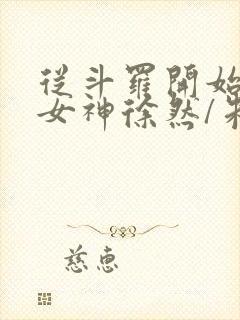 從斗羅開始
女神徐然/朱
慈惠